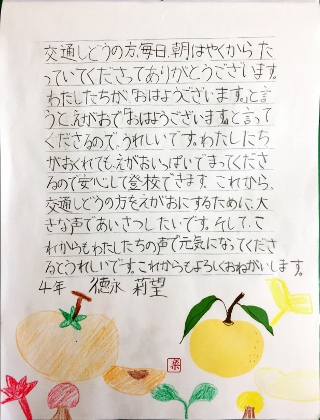 交通しどうの方、毎日、朝はやくからた
っていてくださってありがとうございます。
わたしたちが、「おはようございます。」と言
うと、えがおで「おはようございます。」と言って
くださるので、うれしいです。わたしたち
がおくれても、えがおいっぱいでまってくださ
るので安心して登校できます。これから、
交通しどうの方をえがおにするために、大
きな声であいさつしたいです。そして、こ
れからもわたしたちの声で元気になってくださ
るとうれしいです。これからもよろしくおねがいします。
4年 徳永 莉望